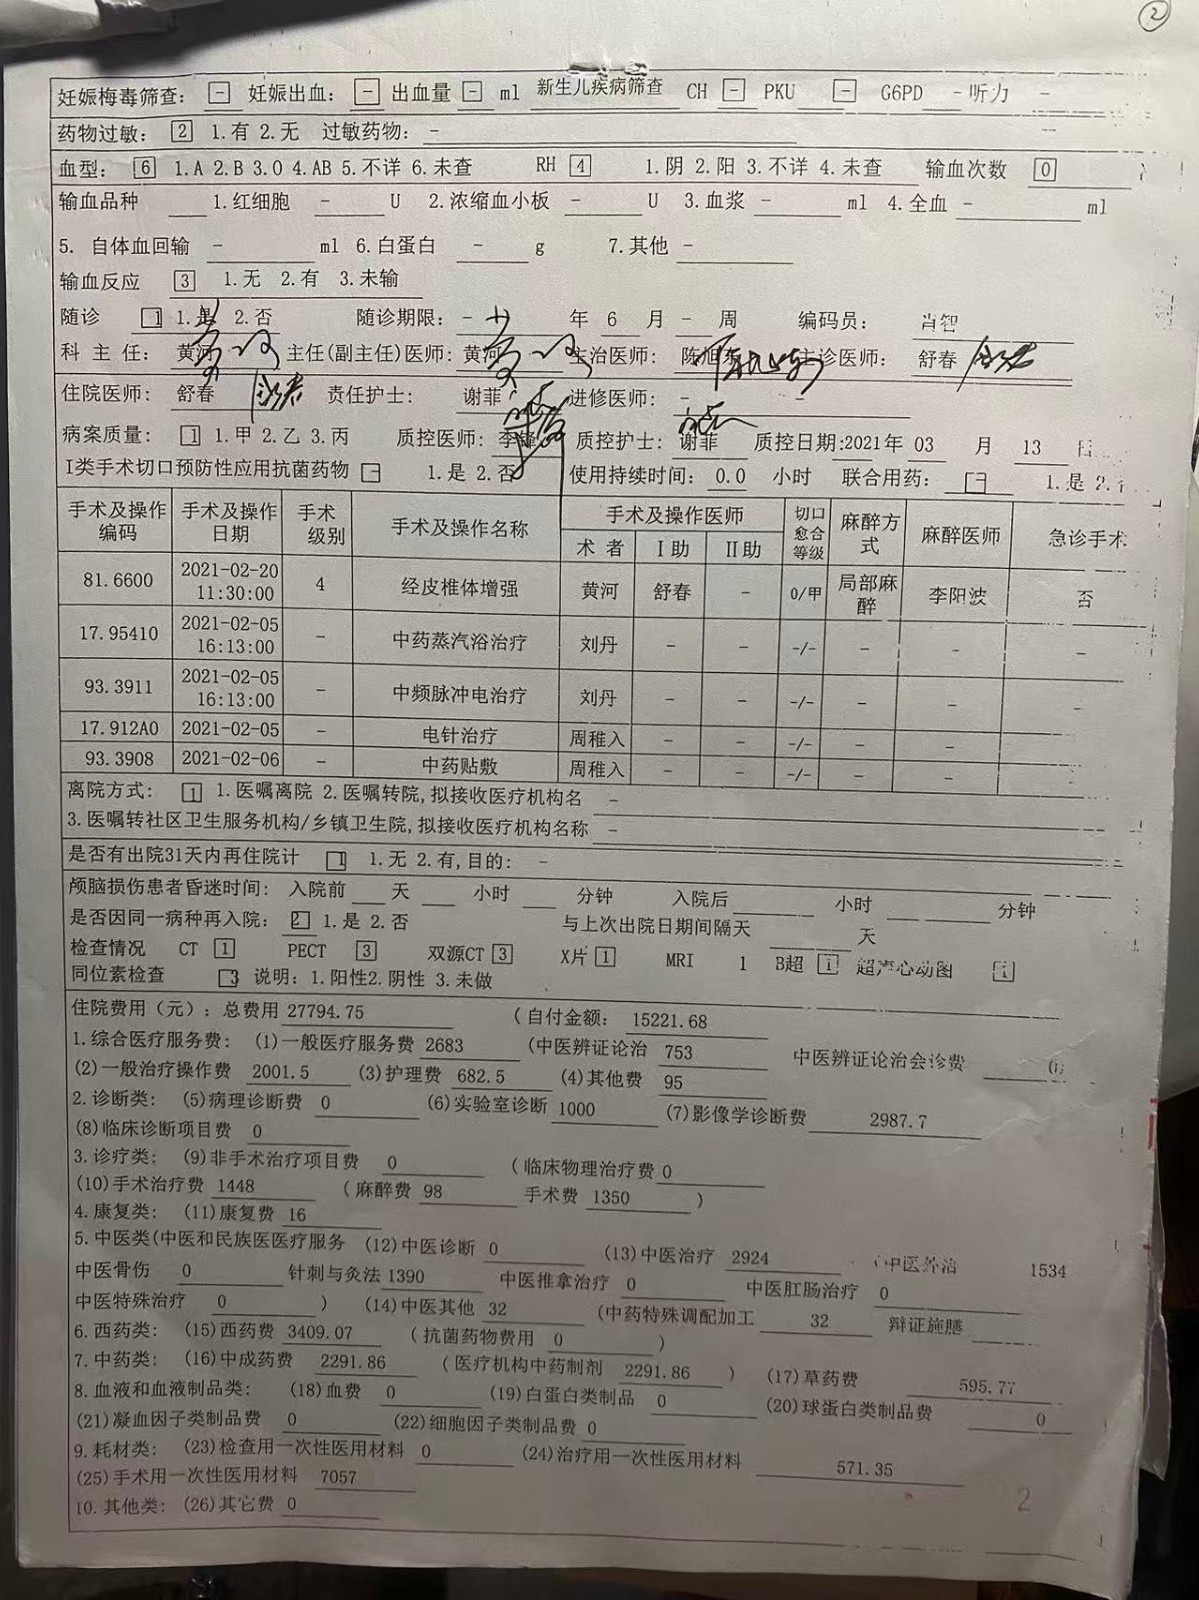 ②
妊娠梅毒筛查: - 妊娠出血: - 出血量 - ml 新生儿疾病筛查 CH - PKU - G6PD - 听力 -
药物过敏: 2 1.有 2.无 过敏药物: -
血型: 6 1.A 2.B 3.O 4.AB 5.不详 6.未查 RH 4 1.阴 2.阳 3.不详 4.未查 输血次数 0
输血品种 1.红细胞 - U 2.浓缩血小板 - U 3.血浆 - ml 4.全血 - ml
5. 自体血回输 - ml 6.白蛋白 - g 7.其他 -
输血反应 3 1.无 2.有 3.未输
随诊 1 1.是 2.否 随诊期限: - 年 6 月 - 周 编码员: 肖智
科 主 任: 黄河 主任(副主任)医师: 黄河 主治医师: 陈旭 主诊医师: 舒春
住院医师: 舒春 责任护士: 谢菲 进修医师: - -
病案质量: 1 1.甲 2.乙 3.丙 质控医师: 李 质控护士: 谢菲 质控日期:2021年 03 月 13 日
I类手术切口预防性应用抗菌药物 - 1.是 2.否 使用持续时间: 0.0 小时 联合用药: - 1.是 2.
手术及操作编码 手术及操作日期 手术级别 手术及操作名称 手术及操作医师 切口愈合等级 麻醉方式 麻醉医师 急诊手术
术 者 I 助 II助
81.6600 2021-02-20 11:30:00 4 经皮椎体增强 黄河 舒春 - 0/甲 局部麻醉 李阳波 否
17.95410 2021-02-05 16:13:00 - 中药蒸汽浴治疗 刘丹 - - -/- - - -
93.3911 2021-02-05 16:13:00 - 中频脉冲电治疗 刘丹 - - -/- - - -
17.912A0 2021-02-05 - 电针治疗 周稚入 - - -/- - - -
93.3908 2021-02-06 - 中药贴敷 周稚入 - - -/- - - -
离院方式: 1 1.医嘱离院 2.医嘱转院,拟接收医疗机构名 -
3.医嘱转社区卫生服务机构/乡镇卫生院,拟接收医疗机构名称 -
是否有出院31天内再住院计 1 1.无 2.有,目的: -
颅脑损伤患者昏迷时间: 入院前 天 小时 分钟 入院后 小时 分钟
是否因同一病种再入院: 2 1.是 2.否 与上次出院日期间隔天 天
检查情况 CT 1 PECT 3 双源CT 3 X片 1 MRI 1 B超 1 超声心动图 1
同位素检查 3 说明: 1.阳性2.阴性 3.未做
住院费用(元): 总费用 27794.75 (自付金额: 15221.68
1.综合医疗服务费: (1)一般医疗服务费 2683 (中医辨证论治 753 中医辨证论治会诊费 0
(2)一般治疗操作费 2001.5 (3)护理费 682.5 (4)其他费 95
2.诊断类: (5)病理诊断费 0 (6)实验室诊断 1000 (7)影像学诊断费 2987.7
(8)临床诊断项目费 0
3.诊疗类: (9)非手术治疗项目费 0 (临床物理治疗费 0
(10)手术治疗费 1448 (麻醉费 98 手术费 1350 )
4.康复类: (11)康复费 16
5.中医类(中医和民族医医疗服务 (12)中医诊断 0 (13)中医治疗 2924 (中医外治 1534
中医骨伤 0 针刺与灸法 1390 中医推拿治疗 0 中医肛肠治疗 0
中医特殊治疗 0 ) (14)中医其他 32 (中药特殊调配加工 32 辩证施膳
6.西药类: (15)西药费 3409.07 (抗菌药物费用 0 )
7.中药类: (16)中成药费 2291.86 (医疗机构中药制剂 2291.86 ) (17)草药费 595.77
8.血液和血液制品类: (18)血费 0 (19)白蛋白类制品 0 (20)球蛋白类制品费 0
(21)凝血因子类制品费 0 (22)细胞因子类制品费 0
9.耗材类: (23)检查用一次性医用材料 0 (24)治疗用一次性医用材料 571.35
(25)手术用一次性医用材料 7057
10.其他类: (26)其它费 0
2